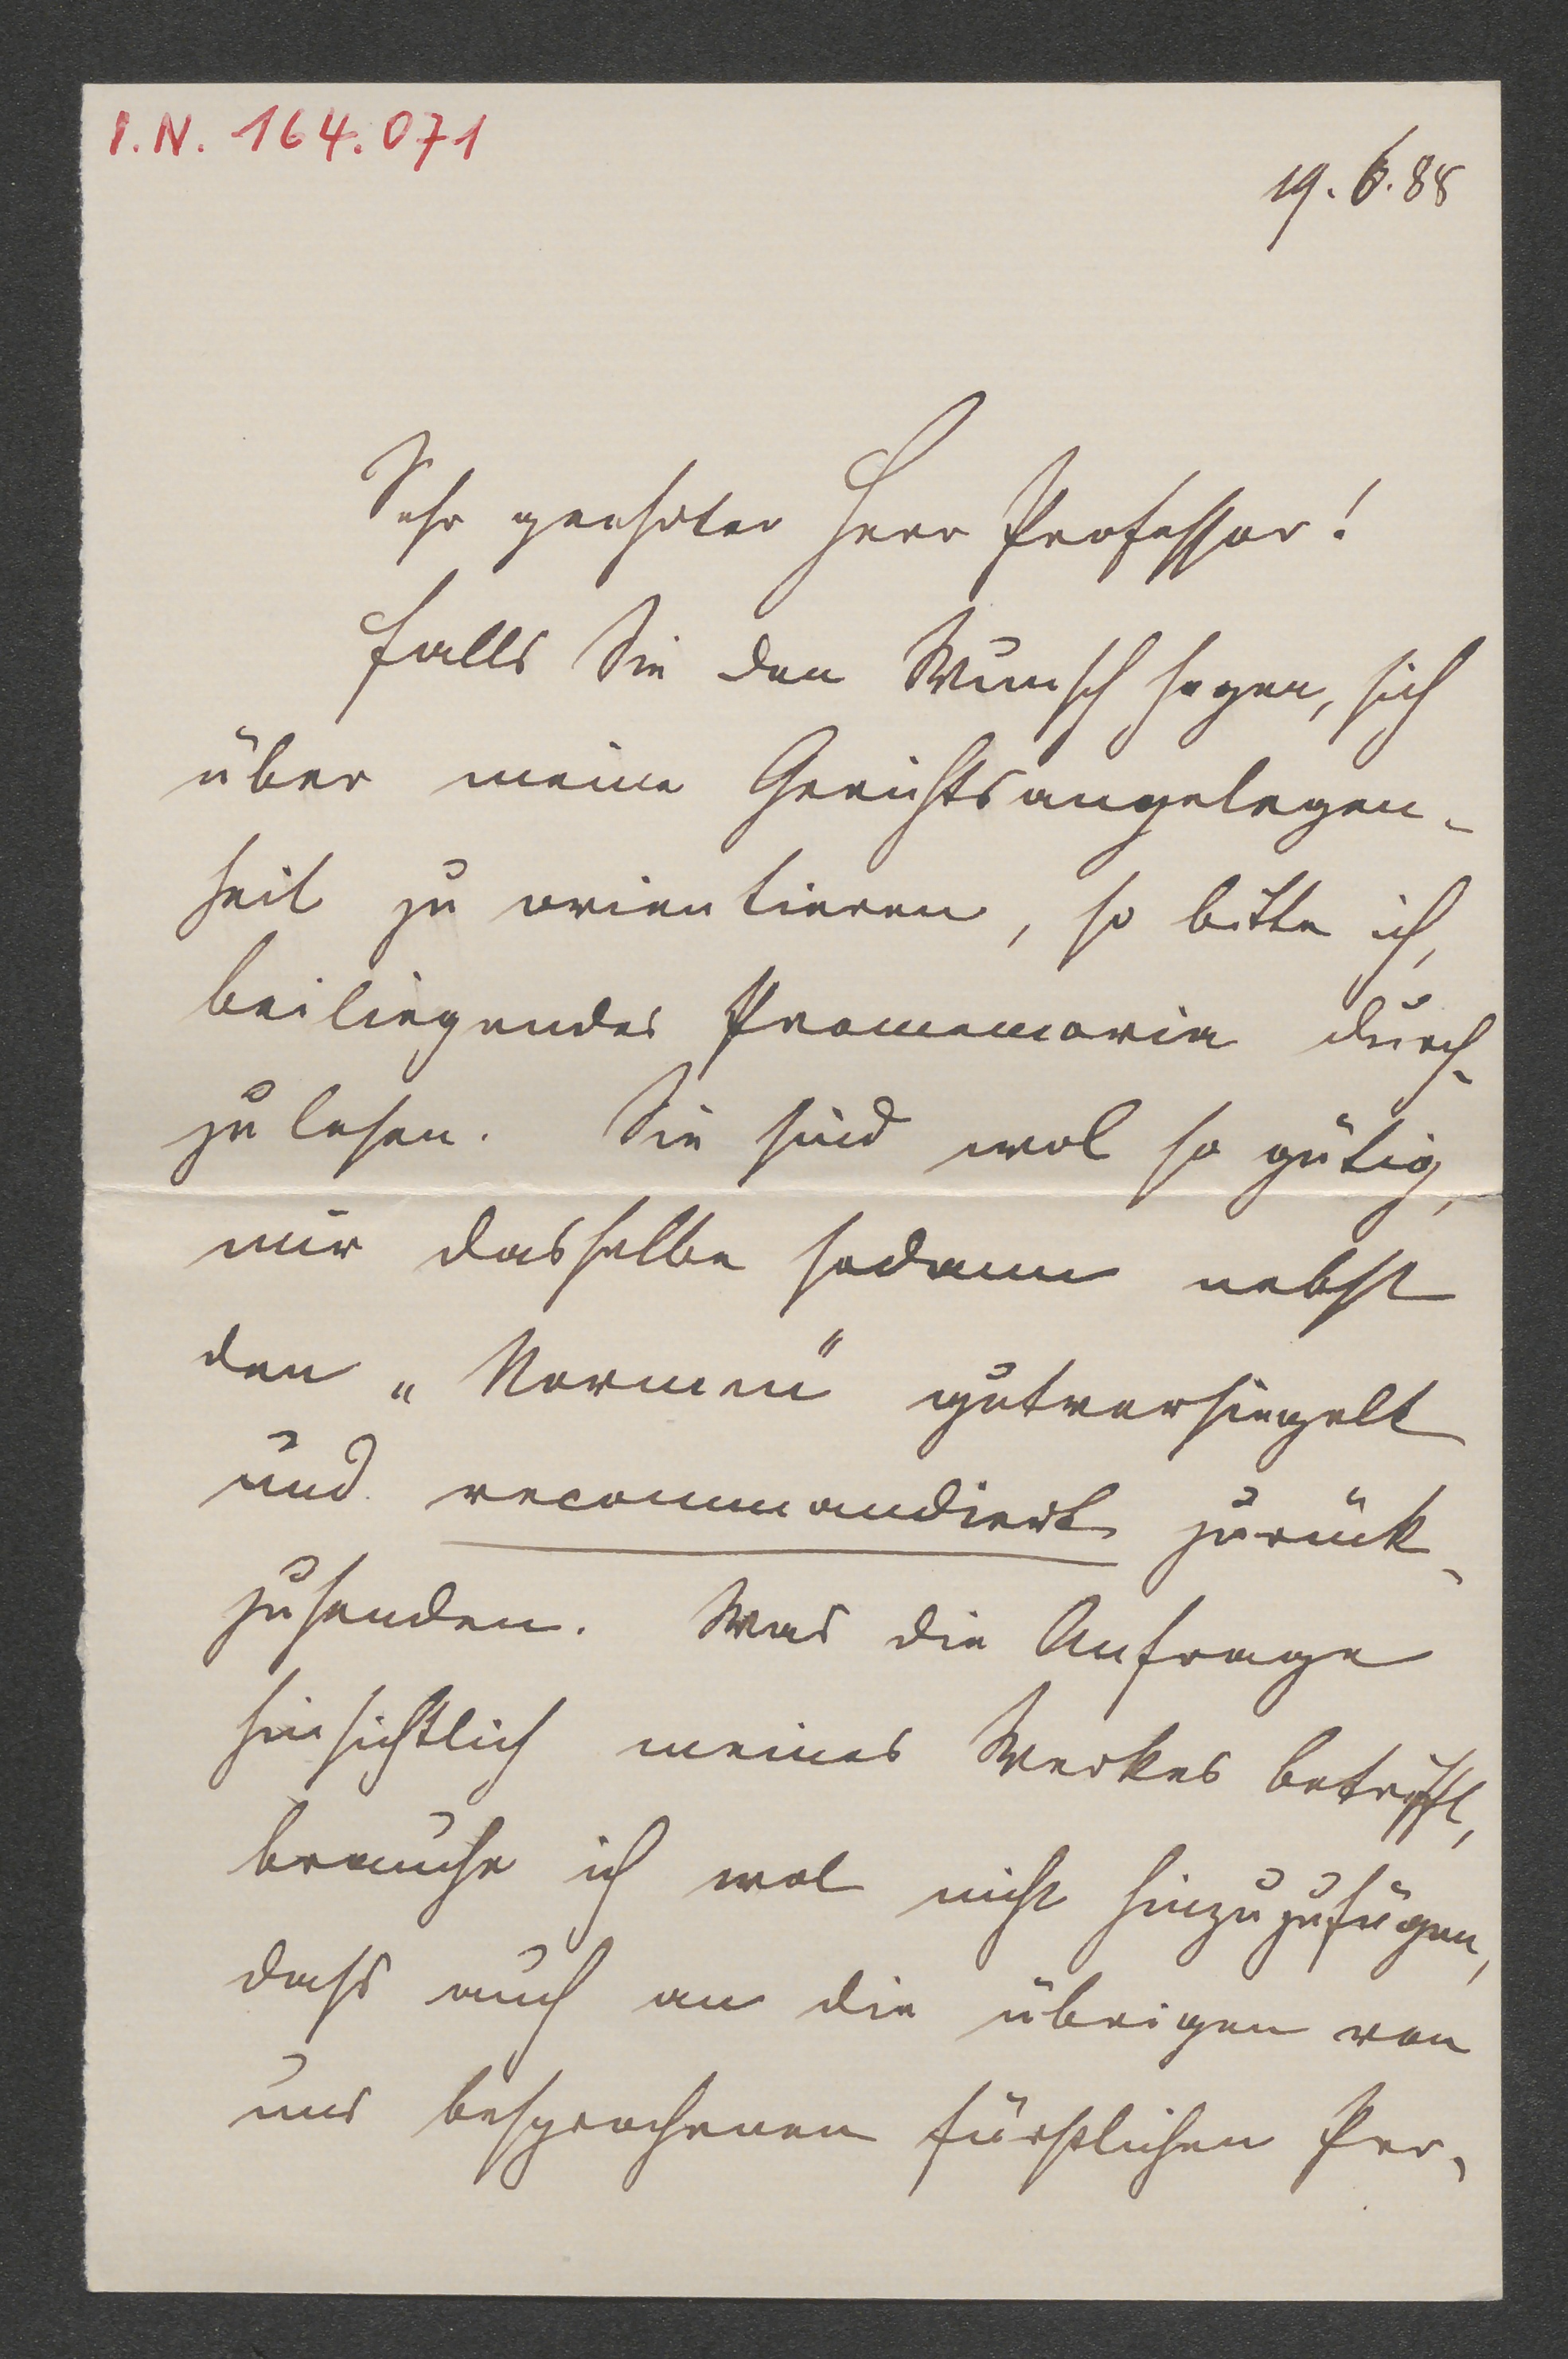 I.N. 164.071
19.6.88
Sehr geehrter Herr Professor!
Falls Sie den Wunsch hegen, sich
über meine Gerichtsangelegen-
heit zu orientieren, so bitte ich,
beiliegendes Promemoria durch-
zulesen. Sie sind wol so gütig,
mir dasselbe sodann nebst
den „Normen" gutversiegelt
und recommandiert zurück-
zusenden. Was die Anfrage
hinsichtlich meines Werkes betrifft,
brauche ich wol nicht hinzuzufügen,
dass auch an die übrigen von
uns besprochenen fürstlichen Per-